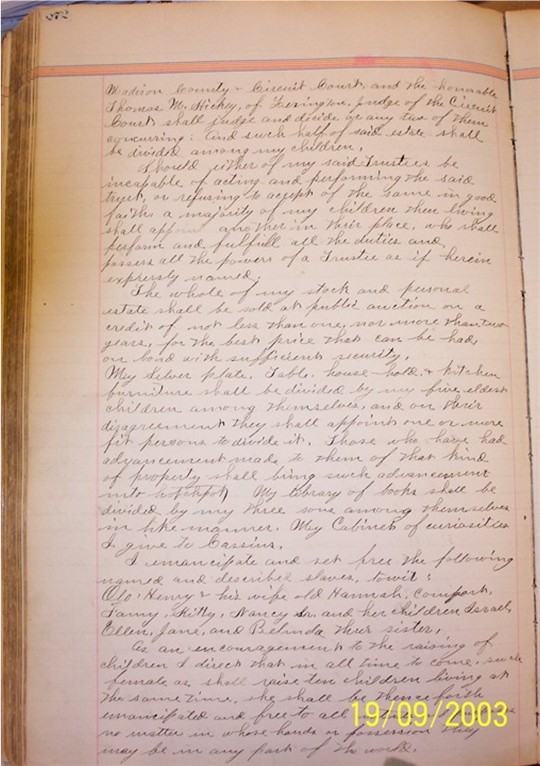 272
Madison County & Circuit Court, and the honorable
Thomas M. Hickey, of Lexington, judge of the Circuit
Court shall judge and decide or any two of them
concurring: And such half of said estate shall
be divided among my children.
Should either of my said Trustees be
incapable of acting and performing the said
trust, or refusing to accept of the same in good
faith a majority of my children then living
shall appoint another in their place, who shall
perform and fulfill all the duties and
possess all the powers of a Trustee as if herein
expressly named.
The whole of my stock and personal
estate shall be sold at public auction on a
credit of not less than one, nor more than two
years, for the best price that can be had,
on bond with sufficient security.
My Silver plate, Table, house-hold & kitchen
furniture shall be divided by my five eldest
children among themselves, and on their
disagreement they shall appoint one or more
fit persons to divide it. Those who have had
advancement made to them of that kind
of property shall bring such advancement
into hotchpot. My library of books shall be
divided by my three sons among themselves
in like manner. My Cabinet of curiosities
I give to Cassius.
I emancipate and set free the following
named and described slaves, towit:
Old Henry & his wife old Hannah, Comfort,
Fanny, Kitty, Nancy Sr. and her children Israel,
Ellen, Jane, and Belinda their sister.
As an encouragement to the raising of
children I direct that in all time to come, such
female as shall raise ten children living at
the same time, she shall be thence forth
emancipated and free to all
no matter in whose hands or possession they
may be in any part of the world.
19/09/2003